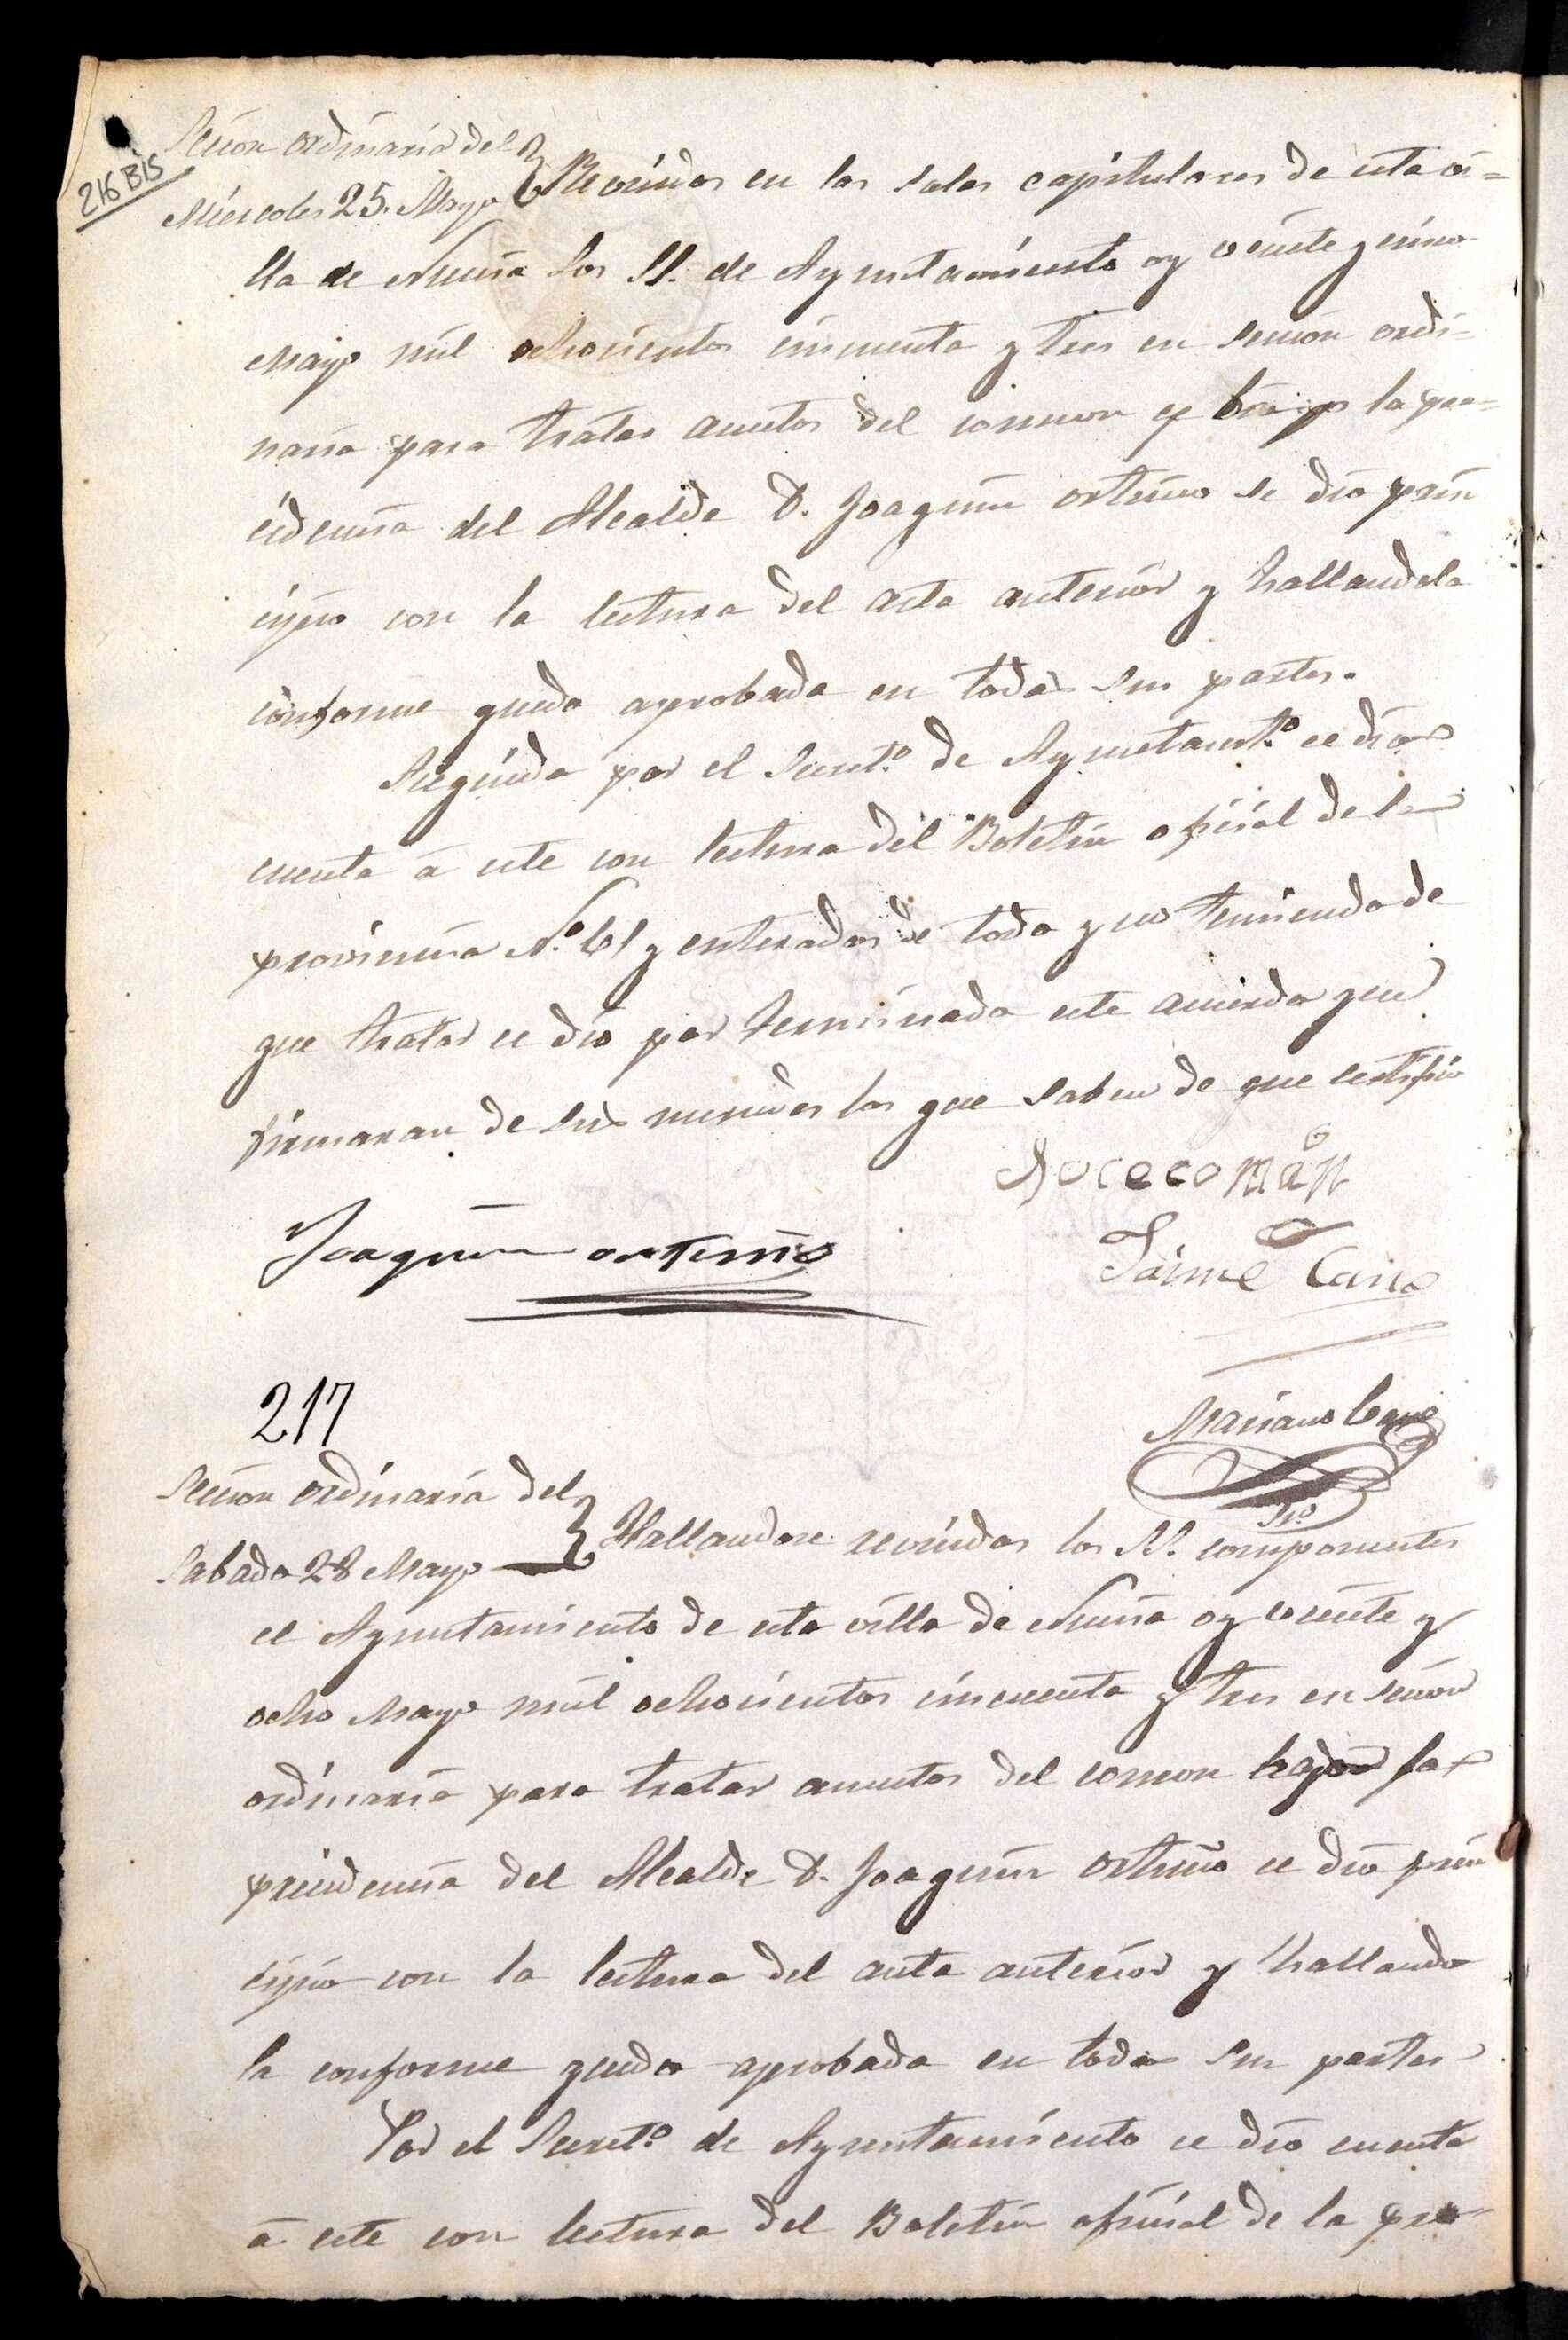 216 BIS
Secion ordinaria del
Miercoles 25. Mayo
Reunidos en las salas capitulares de esta vi=
lla de Nucia los SS. de Ayuntamiento oy veinte y cinco
Mayo mil ochocientos cincuenta y tres en secion ordi=
naria para tratar acuntos del comun y bajo la pre=
cidencia del Alcalde D. Joaquin ortuño se dio prin
cipio con la lectura del acta anterior y hallandola
conforme queda aprobada en todas sus partes.
Seguida por el Secret.º de Ayuntamt.º ce dio
cuenta á este con lectura del Boletin oficial de la
provincia N.º 61 y enterados de todo y no teniendo de
que tratar ce dio por terminado este acuerdo que
firmaran de sus mercedes los que saben de que certifico
Joaquin ortuño
Jaime Cano
217
Mariano Cano
Srio
Secion ordinaria del
Sabado 28 Mayo
Hallandose reunidos los SS. componentes
el Ayuntamiento de esta villa de Nucia oy veinte y
ocho Mayo mil ochocientos cincuenta y tres en secion
ordinaria para tratar acuntos del comun bajo la
precidencia del Alcalde D. Joaquin ortuño ce dio prin
cipio con la lectura del acta anterior y hallando
la conforme queda aprobada en todas sus partes
Por el Secret.º de Ayuntamiento ce dio cuenta
á este con lectura del Boletin oficial de la pro-